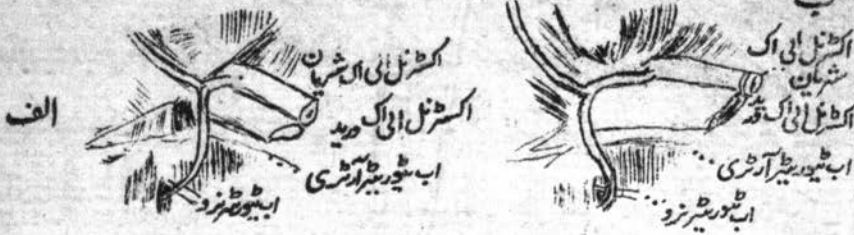 ب
اکسٹرنل الی اک
شریان
اکسٹرنل الی اک ورید
اب ٹیوریٹر آرٹری
اب ٹیوریٹر نرو
الف
اکسٹرنل الی اک شریان
اکسٹرنل الی اک ورید
اب ٹیوریٹر آرٹری
اب ٹیوریٹر نرو